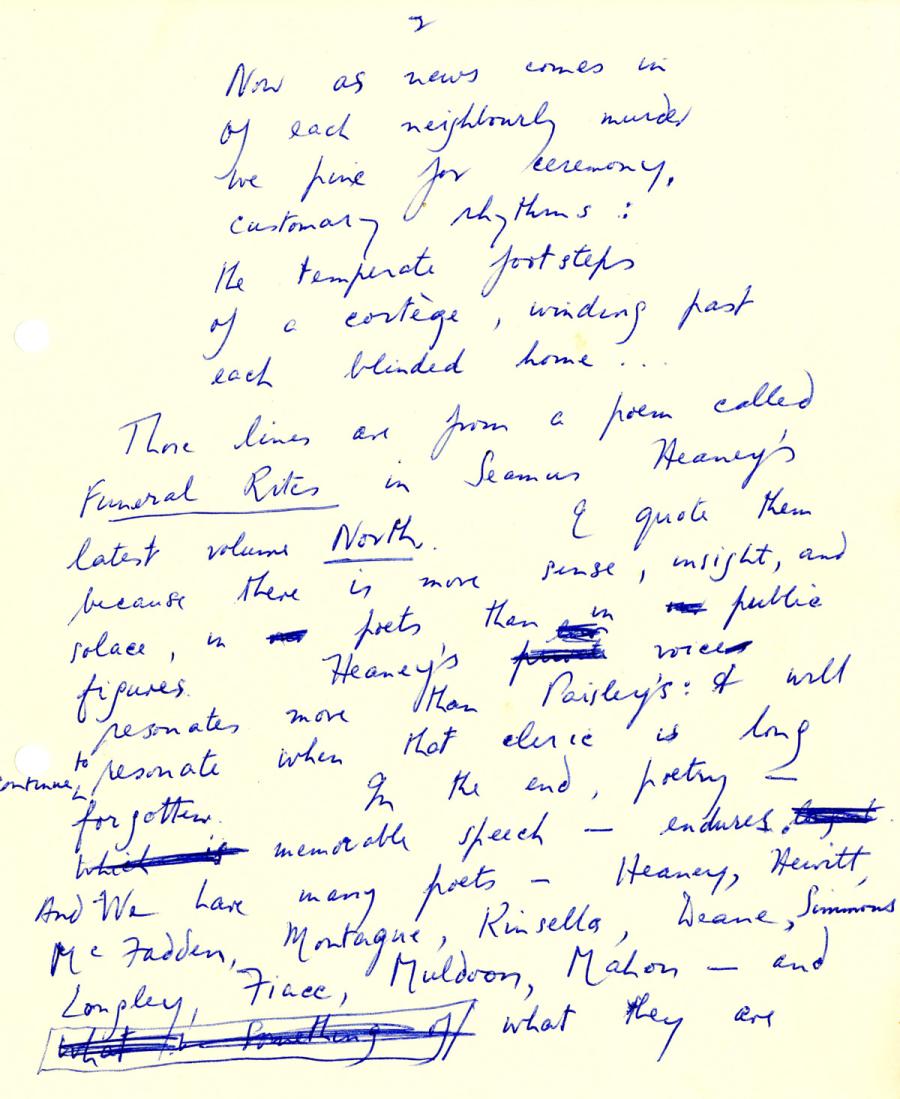 2
Now as news comes in
of each neighbourly murder
we pine for ceremony,
customary rhythms :
the temperate footsteps
of a cortège , winding past
each blinded home ...
Those lines are from a poem called
Funeral Rites in Seamus Heaney's
latest volume North. I quote them
because there is more sense , insight, and
solace , in poets , than in public
figures. Heaney's voice
resonates more than Paisley's: it will
continue to resonate when that cleric is long
forgotten. In the end , poetry —
memorable speech — endures.
And We have many poets — Heaney, Hewitt,
McFadden, Montague , Kinsella , Deane , Simmons
Longley, Fiacc, Muldoon, Mahon — and
what they are